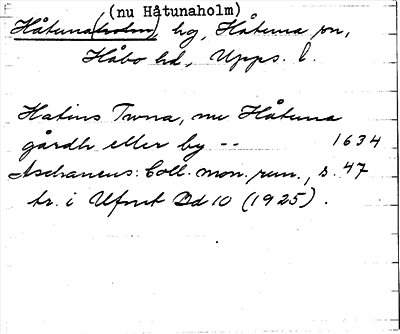 (nu Håtunaholm)
Håtuna(holm), hg, Håtuna sn,
Håbo hd, Upps. l.
Hatuns Twna, nu Håtuna
gårdh eller by -- 1634
Aschaneus: Coll. mon. run., s. 47
tr. i Ufmt Bd 10 (1925).